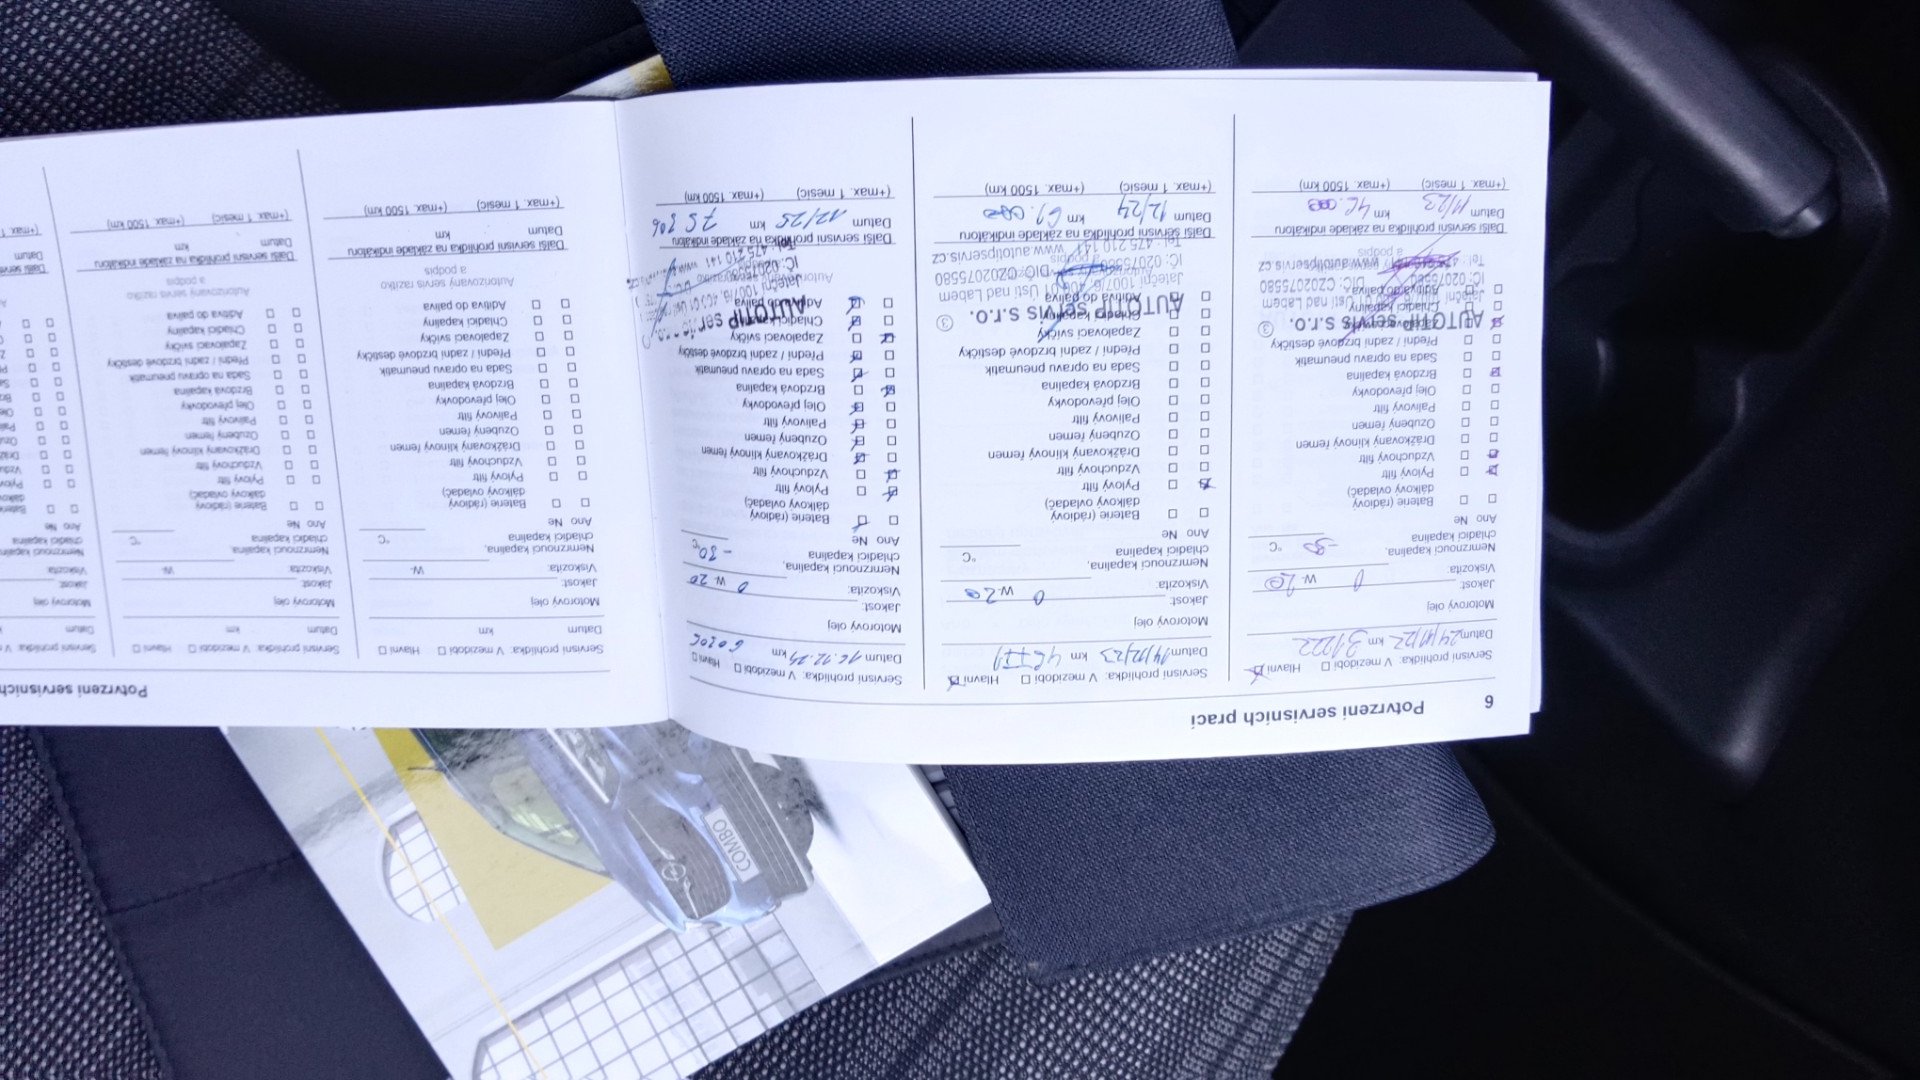 6 Potvrzení servisních prací
Servisní prohlídka: V mezidobí Hlavní
Datum 24/11/22 km 31222
Motorový olej
Jakost:
Viskozita: 0 W 20
Nemrznoucí kapalina,
chladicí kapalina -30 °C
Ano Ne
Baterie (rádiový
dálkový ovladač)
Pylový filtr
Vzduchový filtr
Drážkovaný klínový řemen
Ozubený řemen
Palivový filtr
Olej převodovky
Brzdová kapalina
Sada na opravu pneumatik
Přední / zadní brzdové destičky
Zapalovací svíčky
Chladicí kapaliny
Aditiva do paliva
AUTOTIP servis s.r.o.
Jateční 1007/6, 400 01 Ústí nad Labem
IČ: 02075580 DIČ: CZ02075580
Tel.: 475 210 141 www.autotipservis.cz
a podpis
Další servisní prohlídka na základě indikátoru
Datum 11/23 km 46.000
(+max. 1 měsíc) (+max. 1500 km)
Servisní prohlídka: V mezidobí Hlavní
Datum 14/12/23 km
Motorový olej
Jakost:
Viskozita: 0 W 20
Nemrznoucí kapalina,
chladicí kapalina °C
Ano Ne
Baterie (rádiový
dálkový ovladač)
Pylový filtr
Vzduchový filtr
Drážkovaný klínový řemen
Ozubený řemen
Palivový filtr
Olej převodovky
Brzdová kapalina
Sada na opravu pneumatik
Přední / zadní brzdové destičky
Zapalovací svíčky
Chladicí kapaliny
Aditiva do paliva
AUTOTIP servis s.r.o. 3
Jateční 1007/6, 400 01 Ústí nad Labem
IČ: 02075580 DIČ: CZ02075580
Tel.: 475 210 141 www.autotipservis.cz
a podpis
Další servisní prohlídka na základě indikátoru
Datum 12/24 km 61.000
(+max. 1 měsíc) (+max. 1500 km)
Servisní prohlídka: V mezidobí Hlavní
Datum 16.12.24 km 60306
Motorový olej
Jakost:
Viskozita: 0 W 20
Nemrznoucí kapalina,
chladicí kapalina -30 °C
Ano Ne
Baterie (rádiový
dálkový ovladač)
Pylový filtr
Vzduchový filtr
Drážkovaný klínový řemen
Ozubený řemen
Palivový filtr
Olej převodovky
Brzdová kapalina
Sada na opravu pneumatik
Přední / zadní brzdové destičky
Zapalovací svíčky
Chladicí kapaliny
Aditiva do paliva
AUTOTIP servis
Jateční 1007/6, 400 01
Tel.: 475 210 141
Další servisní prohlídka na základě indikátoru
Datum 12/25 km 75306
(+max. 1 měsíc) (+max. 1500 km)
Potvrzení servisních
Servisní prohlídka: V mezidobí Hlavní
Datum km
Motorový olej
Jakost:
Viskozita: W
Nemrznoucí kapalina,
chladicí kapalina °C
Ano Ne
Baterie (rádiový
dálkový ovladač)
Pylový filtr
Vzduchový filtr
Drážkovaný klínový řemen
Ozubený řemen
Palivový filtr
Olej převodovky
Brzdová kapalina
Sada na opravu pneumatik
Přední / zadní brzdové destičky
Zapalovací svíčky
Chladicí kapaliny
Aditiva do paliva
Autorizovaný servis razítko
a podpis
Další servisní prohlídka na základě indikátoru
Datum km
(+max. 1 měsíc) (+max. 1500 km)
Servisní prohlídka: V mezidobí Hlavní
Datum km
Motorový olej
Jakost:
Viskozita: W
Nemrznoucí kapalina,
chladicí kapalina °C
Ano Ne
Baterie (rádiový
dálkový ovladač)
Pylový filtr
Vzduchový filtr
Drážkovaný klínový řemen
Ozubený řemen
Palivový filtr
Olej převodovky
Brzdová kapalina
Sada na opravu pneumatik
Přední / zadní brzdové destičky
Zapalovací svíčky
Chladicí kapaliny
Aditiva do paliva
Autorizovaný servis razítko
a podpis
Další servisní prohlídka na základě indikátoru
Datum km
(+max. 1 měsíc) (+max. 1500 km)
Servisní prohlídka
Datum
Motorový olej
Jakost:
Viskozita:
Nemrznoucí kapalina
chladicí kapalina
Ano Ne
Datum
COMBO